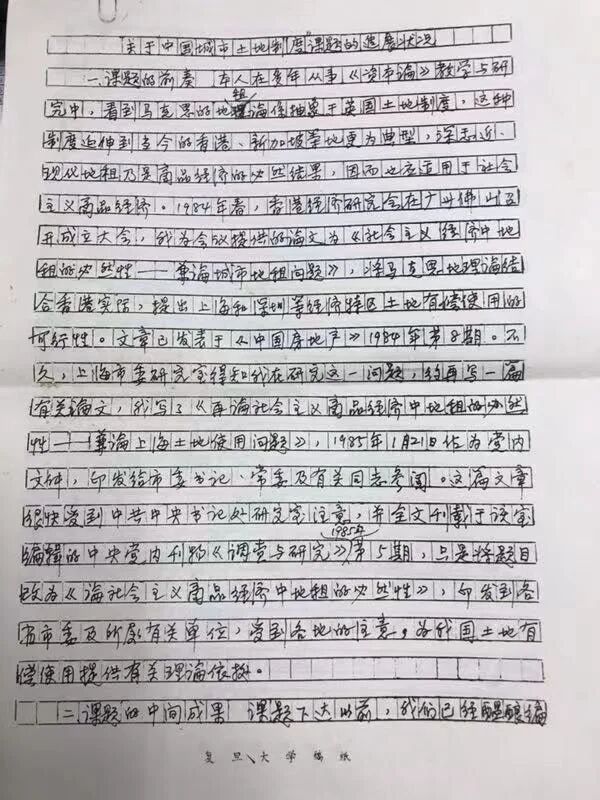 关于中国城市土地制度课题的进展状况
一、课题的前奏 本人在多年从事《资本论》教学与研
究中，看到马克思的地租理论仅抽象于英国土地制度，这种
制度延伸到当今的香港、新加坡等地更为典型，深感近、
现代地租乃是商品经济的必然结果，因而也应适用于社会
主义商品经济。1984年春，香港经济研究会在广州佛山召
开成立大会，我为会议提供的论文为《社会主义经济中地
租的必然性——兼论城市地租问题》，将马克思地理论结
合香港实际，提出上海和深圳等经济特区土地有偿使用的
可行性。文章已发表于《中国房地产》1984年第8期。不
久，上海市委研究室得知我在研究这一问题，约再写一篇
有关论文，我写了《再论社会主义商品经济中地租的必然
性——兼论上海土地使用问题》，1985年1月21日作为党内
文件，印发给市委书记、常委及有关同志参阅。这篇文章
很快受到中共中央书记处研究室注意，并全文刊载于该室
编辑的中央党内刊物《调查与研究》1985年第5期，只是将题目
改为《论社会主义商品经济中地租的必然性》，印发到各
省市委及所属有关单位，受到各地的注意，为我国土地有
偿使用提供有关理论依据。
二、课题的中间成果 课题下达以前，我们已经醖酿编
复旦大学稿纸